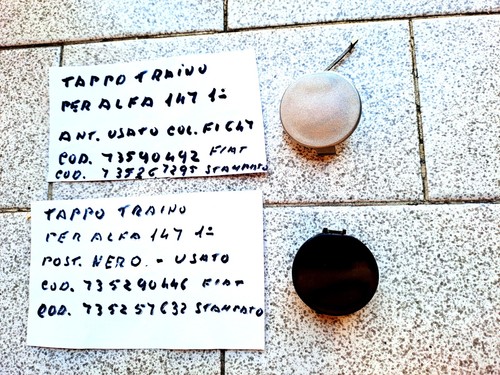 TAPPO TRAINO
PER ALFA 147 1ª
ANT. USATO COL. FI 647
COD. 73590442 FIAT
COD. 735267295 STAMPATO
TAPPO TRAINO
PER ALFA 147 1ª
POST. NERO. - USATO
COD. 735290446 FIAT
COD. 735257632 STAMPATO